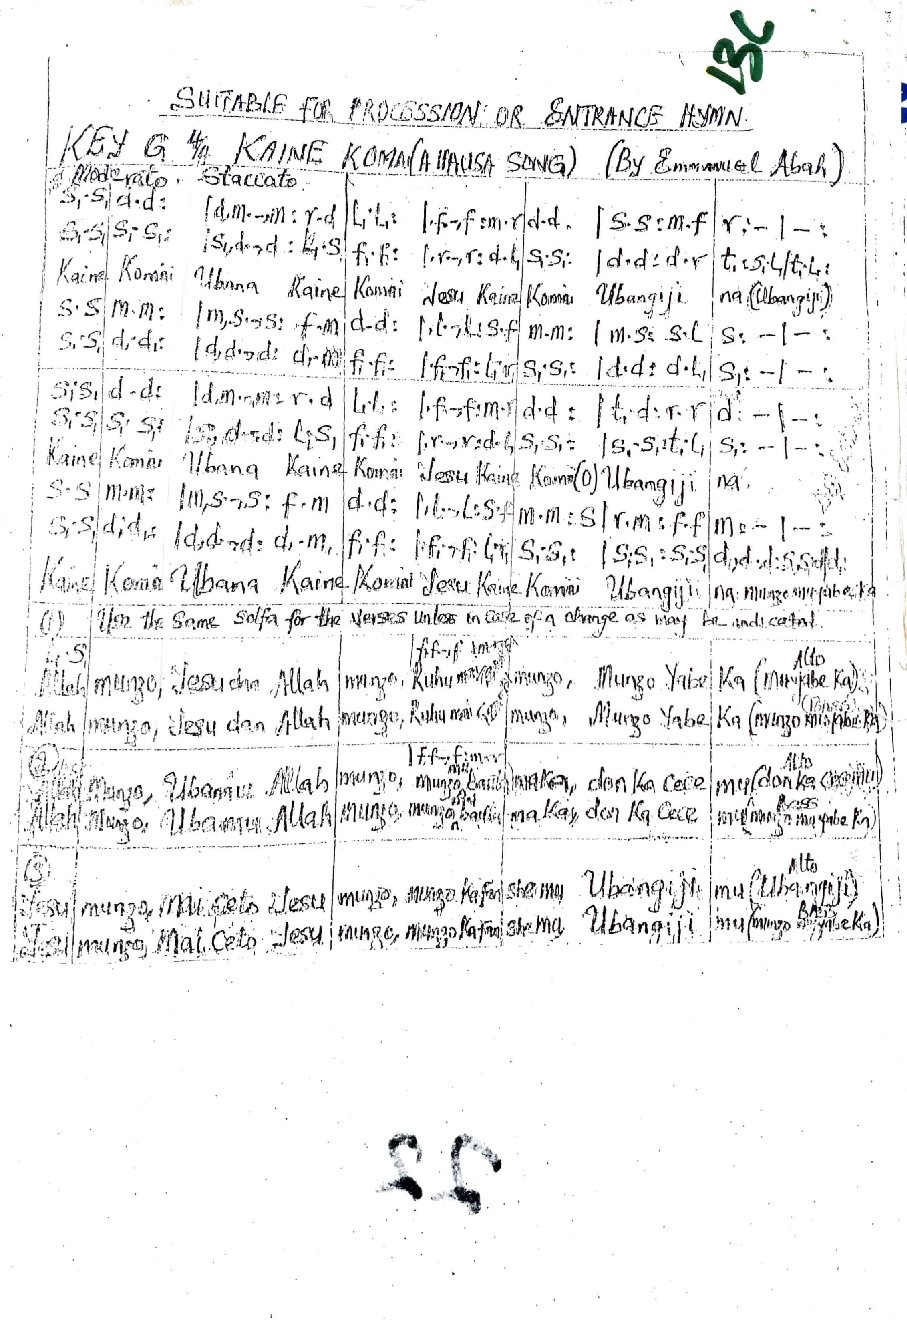 13C
SUITABLE FOR PROCESSION OR ENTRANCE HYMN.
KEY G 4/4 KAINE KOMAI (A HAUSA SONG) (By Emmanuel Abah)
Moderato. Staccato
S₁.S₁ d.d: |d,m.-,m: r.d l₁.l₁: |.f.-,f:m.r d.d. |s.s:m.f r:-|-:
S₁.S₁ S₁.S₁: |S₁,d.-,d: l₁.S₁ f₁.f₁: |.r.-,r:d.l₁ S₁.S₁: |d.d:d.r t₁:S₁.l₁/t₁.l₁:
Kaine Komai Ubana Kaine Komai Jesu Kaine Komai Ubangiji na (Ubangiji)
s.s m.m: |m,s.-,s: f.m d.d: |.l.-,l:s.f m.m: |m.s: s.l s:-|-:
S₁.S₁ d.d: |d,d.-,d: d.m f₁.f₁: |.f₁.-,f₁:l₁.r S₁.S₁: |d.d: d.l₁ S₁:-|-:
S₁.S₁ d.d: |d,m.-,m: r.d l₁.l₁: |.f.-,f:m.r d.d: |t₁.d:r.r d:-|-:
S₁.S₁ S₁.S₁: |S₁,d.-,d: l₁.S₁ f₁.f₁: |.r.-,r:d.l₁ S₁.S₁: |S₁.S₁:t₁.l₁ S₁:-|-:
Kaine Komai Ubana Kaine Komai Jesu Kaine Komai (O) Ubangiji na.
s.s m.m: |m,s.-,s: f.m d.d: |.l.-,l:s.f m.m:s|r.m:f.f m:-|-:
S₁.S₁ d.d: |d,d.-,d: d.m, f₁.f₁: |.f₁.-,f₁:l₁.r₁ S₁.S₁: |S₁.S₁:S₁.S₁ d,d
Kaine Komai Ubana Kaine Komai Jesu Kaine Komai Ubangiji na munzo muyabe ka
(1) Use the same solfa for the verses unless in case of a change as may be indicated.
Alto
Allah munzo, Jesu dan Allah munzo, Ruhu munzo, Munzo Yabe Ka (Muyabe Ka)
Allah munzo, Jesu dan Allah munzo, Ruhu mai munzo, Munzo Yabe Ka (munzo muyabe Ka)
(2) |f.f.-,f:m.r Alto
Allah Munzo, Ubanmu Allah munzo, munzo maka, don Ka Cece mu (don Ka cece mu)
Bass
Allah Munzo, Ubanmu Allah munzo, munzo maka, don Ka Cece mu (munzo muyabe Ka)
(3) Alto
Jesu munzo, Mai Ceto Jesu munzo, munzo Kafan she mu, Ubangiji mu (Ubangiji)
Bass
Jesu munzo, Mai Ceto Jesu munzo, munzo Kafan she mu, Ubangiji mu (munzo muyabe Ka)
22